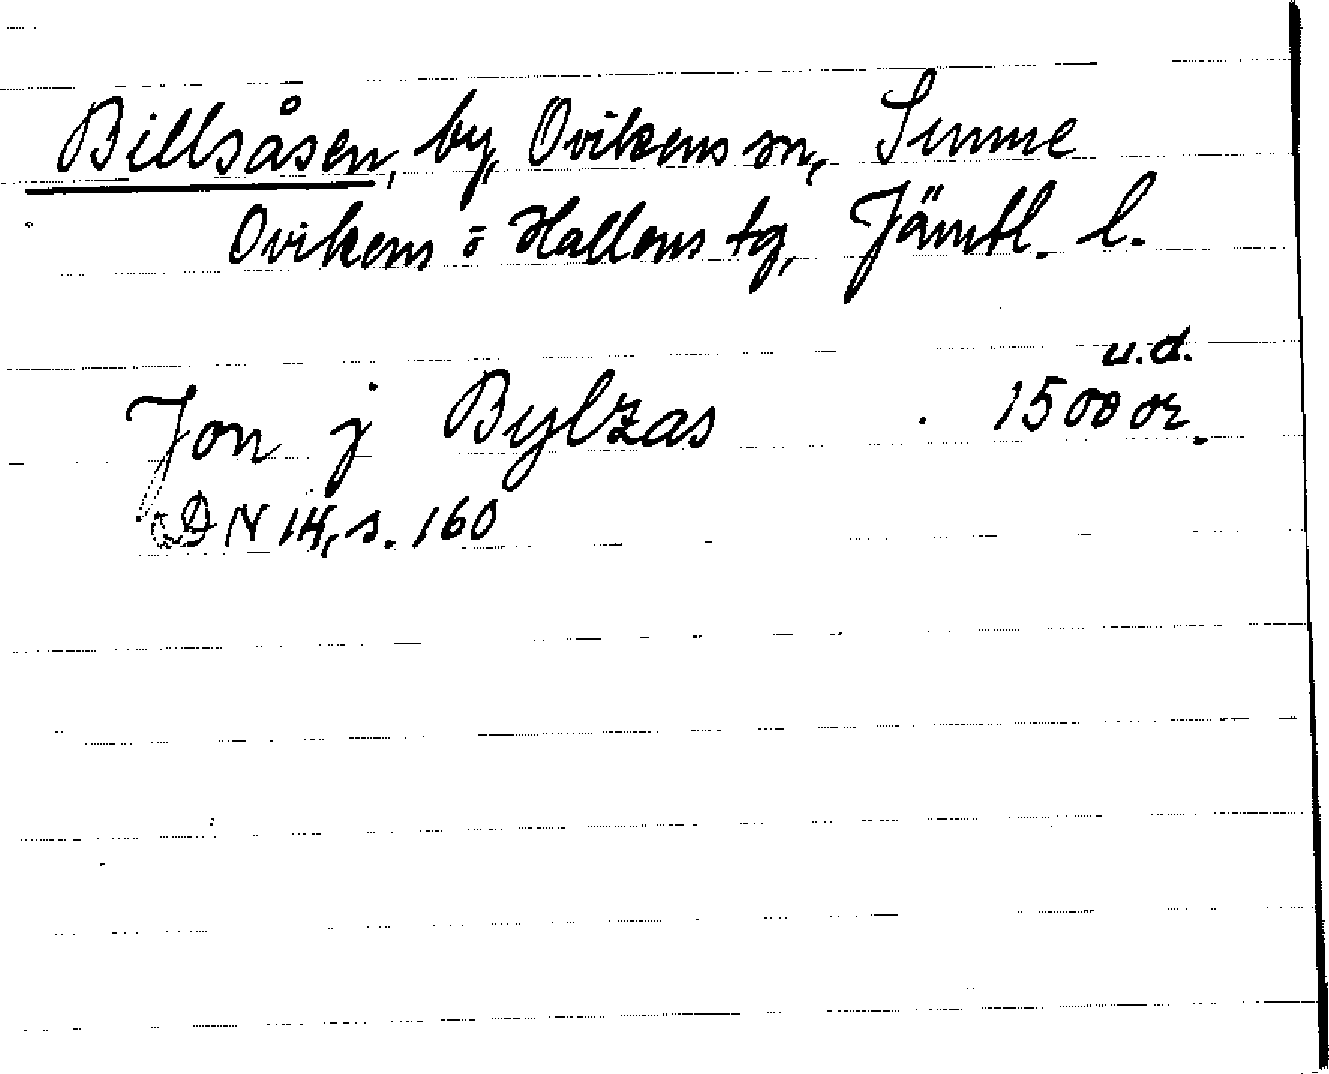 Billsåsen, by, Ovikens sn, Sunne
Ovikens o Hallens tg, Jämtl. l.
u.d.
Jon j Bylzas . 1500 or.
DN 14, s. 160